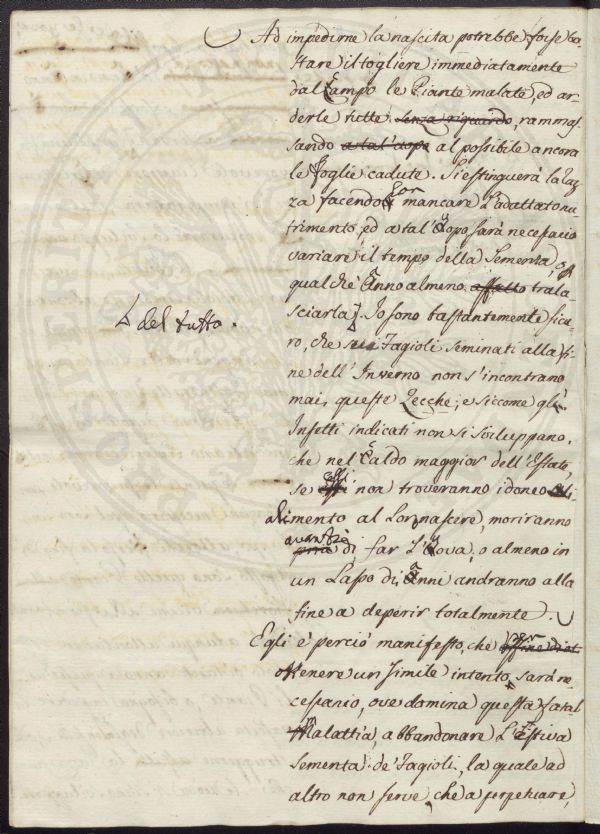 Ad impedirne la nascita potrebbe forse ba-
stare il togliere immediatamente
dal Campo le Piante malate, ed ar-
derle tutte senza riguardo, rammas-
sando a tal'uopo al possibile ancora
le foglie cadute. Si estinguerà la raz-
za facendo Lor mancare l'adattato nu-
trimento, ed a tal'uopo sarà necessario
variare il tempo della Semenza, o p
qualche Anno almeno affatto trala-
sciarla. Io sono bastantemente sicu-
ro, che sui Fagioli seminati alla fi-
ne dell'Inverno non s'incontrano
mai queste Zecche; e siccome gli
Insetti indicati non si sviluppano,
che nel Caldo maggior dell'Estate,
se essi non troveranno idoneo ali
alimento al Lor nascere, moriranno
avanti di far l'Uova, o almeno in
un Lasso di Anni andranno alla
fine a deperir totalmente.
del tutto.
Egli è perciò manifesto, che per
ottenere un simile intento, sarà ne-
cessario, ove domina questa fatal
Malattia, abbandonare l'estiva
sementa de' Fagioli, la quale ad
altro non serve, che a perpetuare,